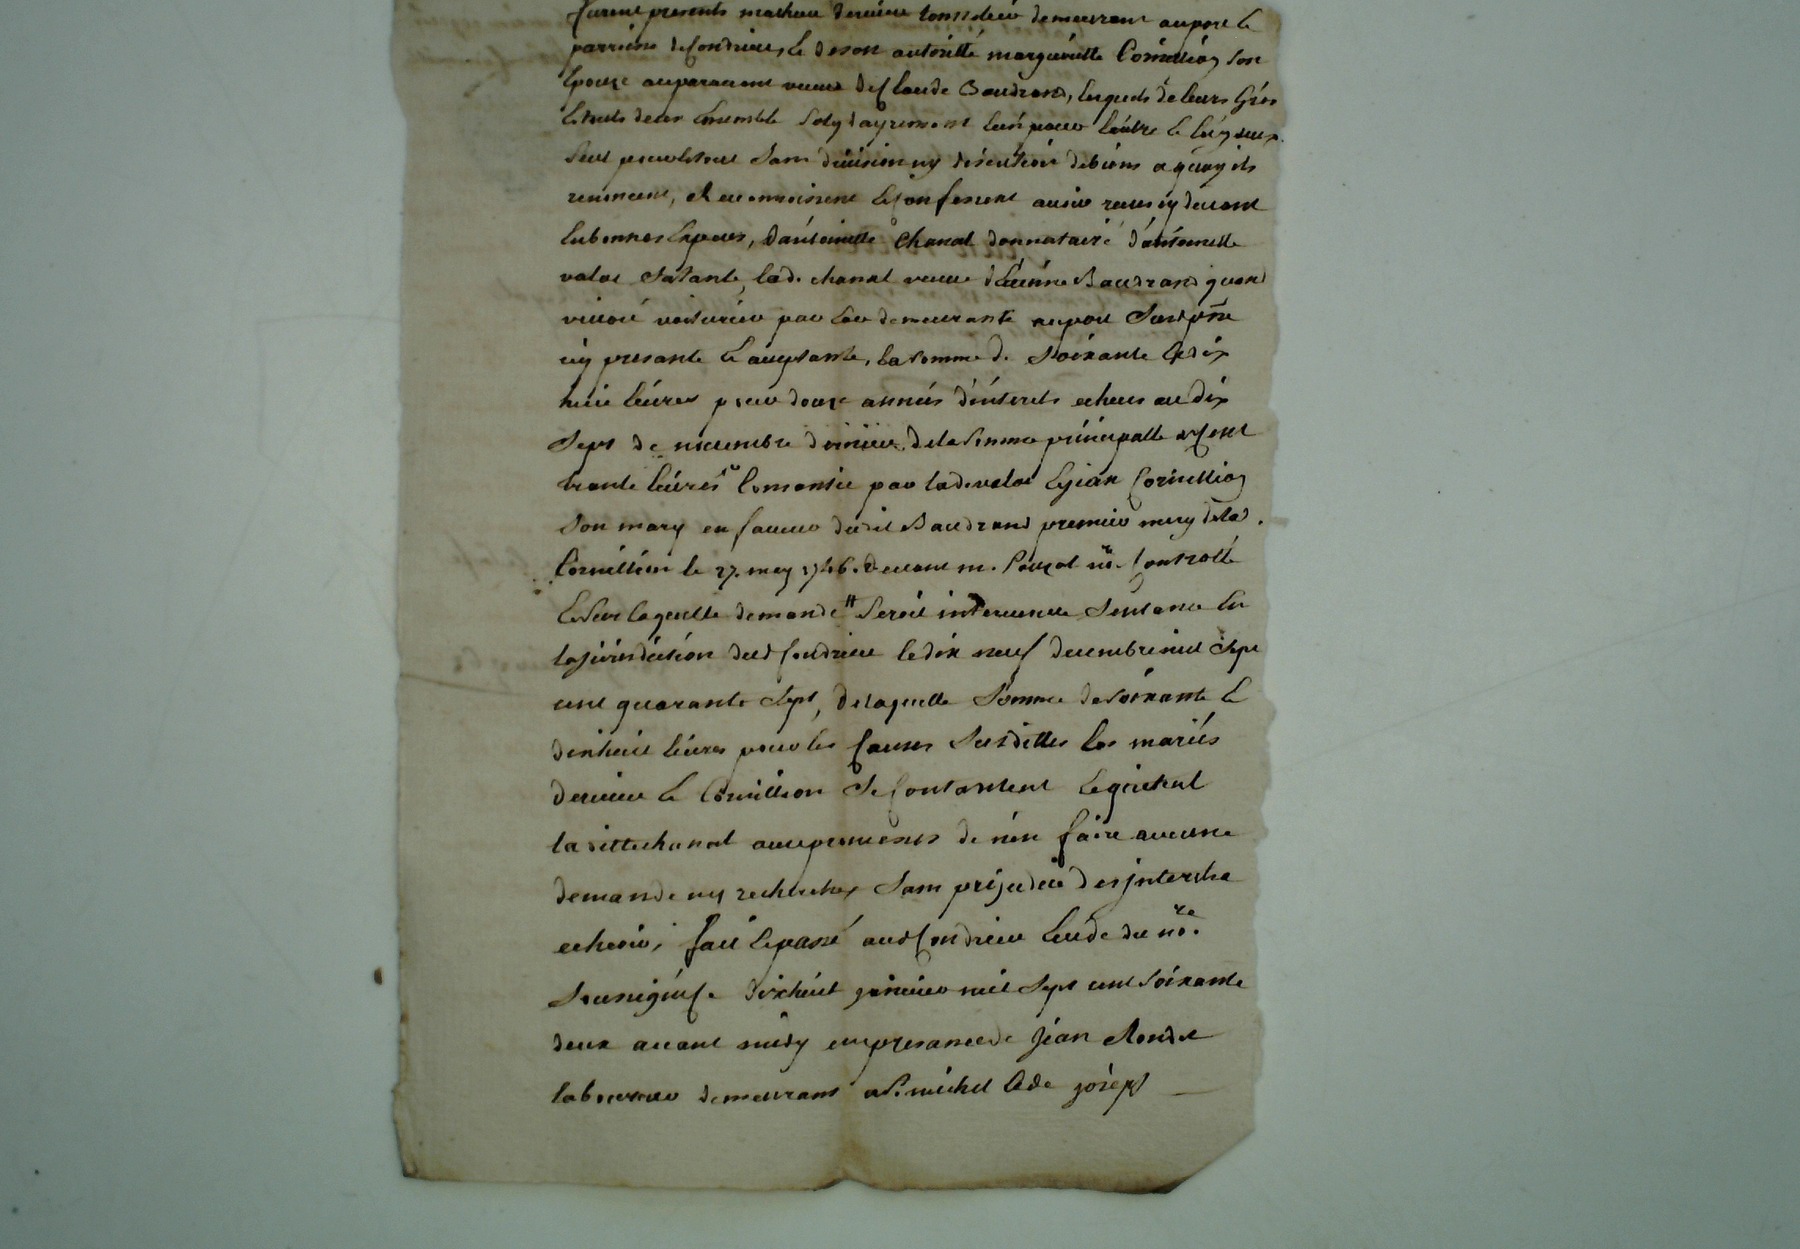 furent presents mathieu dervieu tonnelier demeurant au port &
parroisse de Condrieu, & de son autorité margueritte Cornillion son
Epouze auparavant veuve de Claude Baudrand, lesquels de leurs Grés
& tous deux Ensemble solydayrement l'un pour l'autre & l'un deux
seul pour le tout sans division ny discution de biens a quoy ils
renoncent, Reconnoissent & confessent avoir receu cy devant
En bonnes Especes, d'antoinette Chanal donnataire d'antoinette
valas sa tante, lad. chanal veuve d'Etiene Baudrand quand
vivoit voiturier par Eau demeurante au port
icy presante & aceptante, la somme de soixante & dix
huit livres pour douze années d'interets echues au dix
sept de novembre dernier de la somme principalle de Cent
trente livres par lad. valas & jean Cornillion
son mary en faveur dudit Baudrand premier mary de lad.
Cornillion le 27. may 1746. devant m. no.re Controllé
& sur laquelle demande seroit intervenue sentance En
la jurisdiction dud Condrieu le dix neuf decembre mil sept
cent quarante sept, de laquelle somme de soixante &
dix huit livres pour les causes susdittes les mariés
dervieu & Cornillion se contantent & quittent
la ditte chanal avec promesses de n'en faire aucune
demande ny recherches sans prejudice des interets a
echeoir, fait & passé aud Condrieu Etude du no.re
soussigné le dixhuit janvier mil sept cent soixante
deux avant midy en presance de jean
laboureur demeurant a St. michel & de joseph